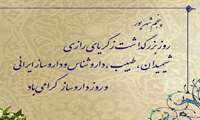 پنجم شهریور
روز بزرگداشت زکریای رازی
شیمیدان، طبیب، داروشناس و داروساز ایرانی
و روز داروساز گرامی باد